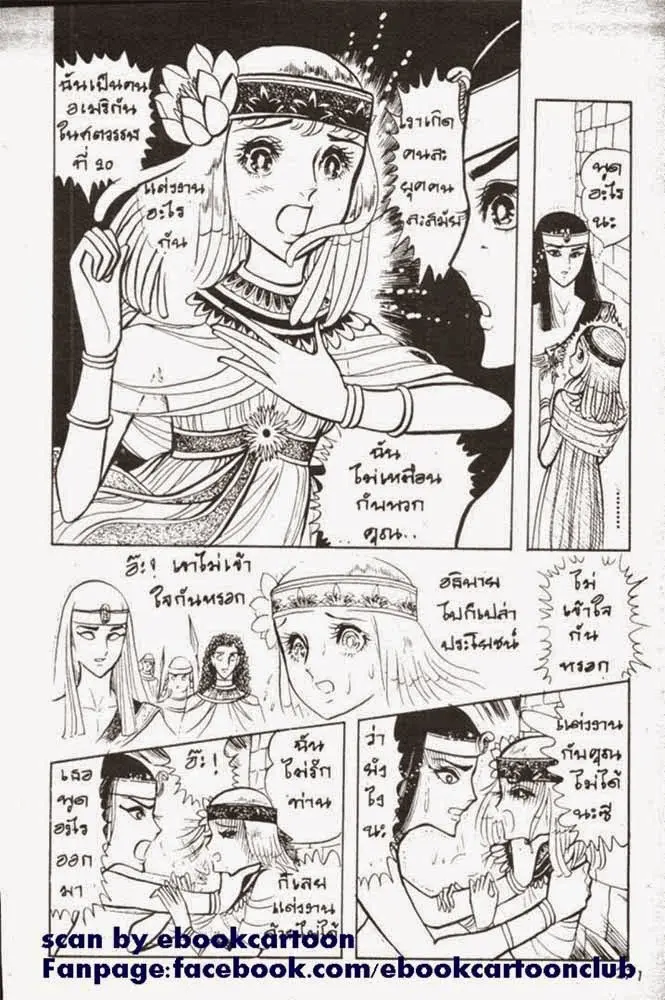 ฉันเป็นคน
อเมริกัน
ในศตวรรษ
ที่ 20
แต่งงาน
อะไร
กัน
เราเกิด
คนละ
ยุคคน
ละสมัย
พูด
อะไร
นะ
ฉัน
ไม่เหมือน
กับพวก
คุณ..
อ๊ะ! เขาไม่เข้า
ใจกันหรอก
อธิบาย
ไปก็เปล่า
ประโยชน์
ไม่
เข้าใจ
กัน
หรอก
เธอ
พูด
อะไร
ออก
มา
อ๊ะ!
ฉัน
ไม่รัก
ท่าน
ก็เลย
แต่งงาน
ด้วยไม่ได้
ว่า
ยัง
ไง
นะ
แต่งงาน
กับคุณ
ไม่ได้
นะซี
scan by ebookcartoon
Fanpage:facebook.com/ebookcartoonclub